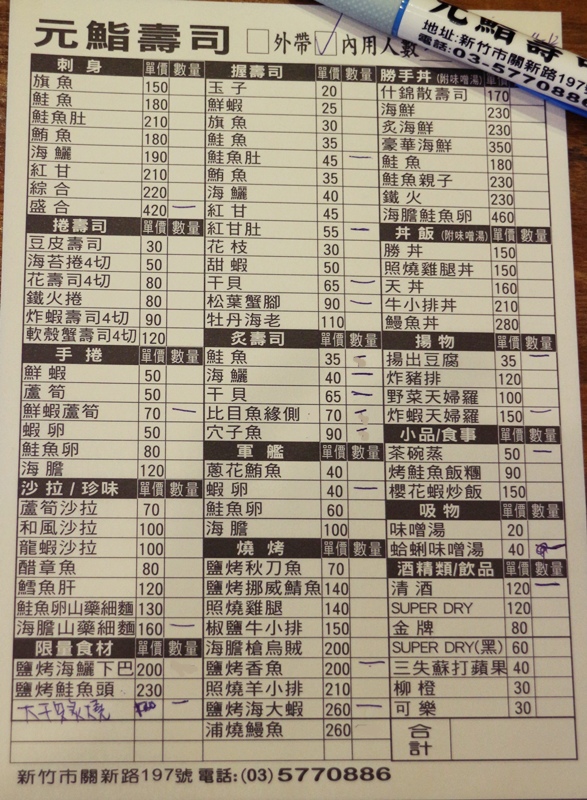 元鮨壽司 □外帶 ☑內用人數
元鮨壽司
地址:新竹市關新路197
電話:03-5770886
刺身 單價 數量
旗魚 150
鮭魚 180
鮭魚肚 210
鮪魚 180
海鱺 190
紅甘 210
綜合 220
盛合 420 一
捲壽司 單價 數量
豆皮壽司 30
海苔捲4切 50
花壽司4切 80
鐵火捲 80
炸蝦壽司4切 90
軟殼蟹壽司4切 120
手捲 單價 數量
鮮蝦 50
蘆筍 50
鮮蝦蘆筍 70 一
蝦卵 50
鮭魚卵 80
海膽 120
沙拉/珍味 單價 數量
蘆筍沙拉 70
和風沙拉 100
龍蝦沙拉 100
醋章魚 80
鱈魚肝 120
鮭魚卵山藥細麵 130
海膽山藥細麵 160 一
限量食材 單價 數量
鹽烤海鱺下巴 200
鹽烤鮭魚頭 230
大干貝 燒 一
握壽司 單價 數量
玉子 20
鮮蝦 25
旗魚 30
鮭魚 35
鮭魚肚 45 一
鮪魚 35
海鱺 40
紅甘 45
紅甘肚 55 一
花枝 30
甜蝦 50
干貝 65 一
松葉蟹腳 90 一
牡丹海老 110
炙壽司 單價 數量
鮭魚 35 一
海鱺 40 一
干貝 65 一
比目魚緣側 70 一
穴子魚 90 一
軍艦 單價 數量
蔥花鮪魚 40
蝦卵 40 一
鮭魚卵 60
海膽 100
燒烤 單價 數量
鹽烤秋刀魚 70
鹽烤挪威鯖魚 140
照燒雞腿 140
椒鹽牛小排 150
海膽槍烏賊 200
鹽烤香魚 200 一
照燒羊小排 210
鹽烤海大蝦 260 一
蒲燒鰻魚 260
勝手丼(附味噌湯) 單價
什錦散壽司 170
海鮮 230
炙海鮮 230
豪華海鮮 350
鮭魚 180
鮭魚親子 230
鐵火 230
海膽鮭魚卵 460
丼飯(附味噌湯) 單價 數量
勝丼 150
照燒雞腿丼 150
天丼 160
牛小排丼 210
鰻魚丼 280
揚物 單價 數量
揚出豆腐 35 一
炸豬排 120
野菜天婦羅 100
炸蝦天婦羅 150 一
小品/食事 單價 數量
茶碗蒸 50 一
烤鮭魚飯糰 90
櫻花蝦炒飯 150
吸物 單價 數量
味噌湯 20
蛤蜊味噌湯 40
酒精類/飲品 單價 數量
清酒 120 一
SUPER DRY 120
金牌 80
SUPER DRY(黑) 60
三矢蘇打蘋果 40
柳橙 30
可樂 30
合計
新竹市關新路197號 電話:(03)5770886